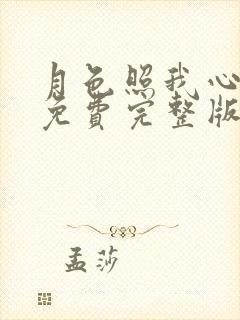 月色照我心
免费完整版
孟莎